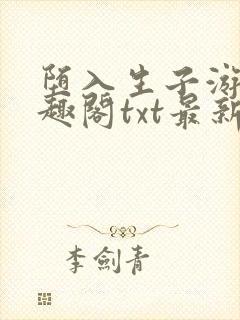 堕入生子游
趣阁txt最新
李劍青